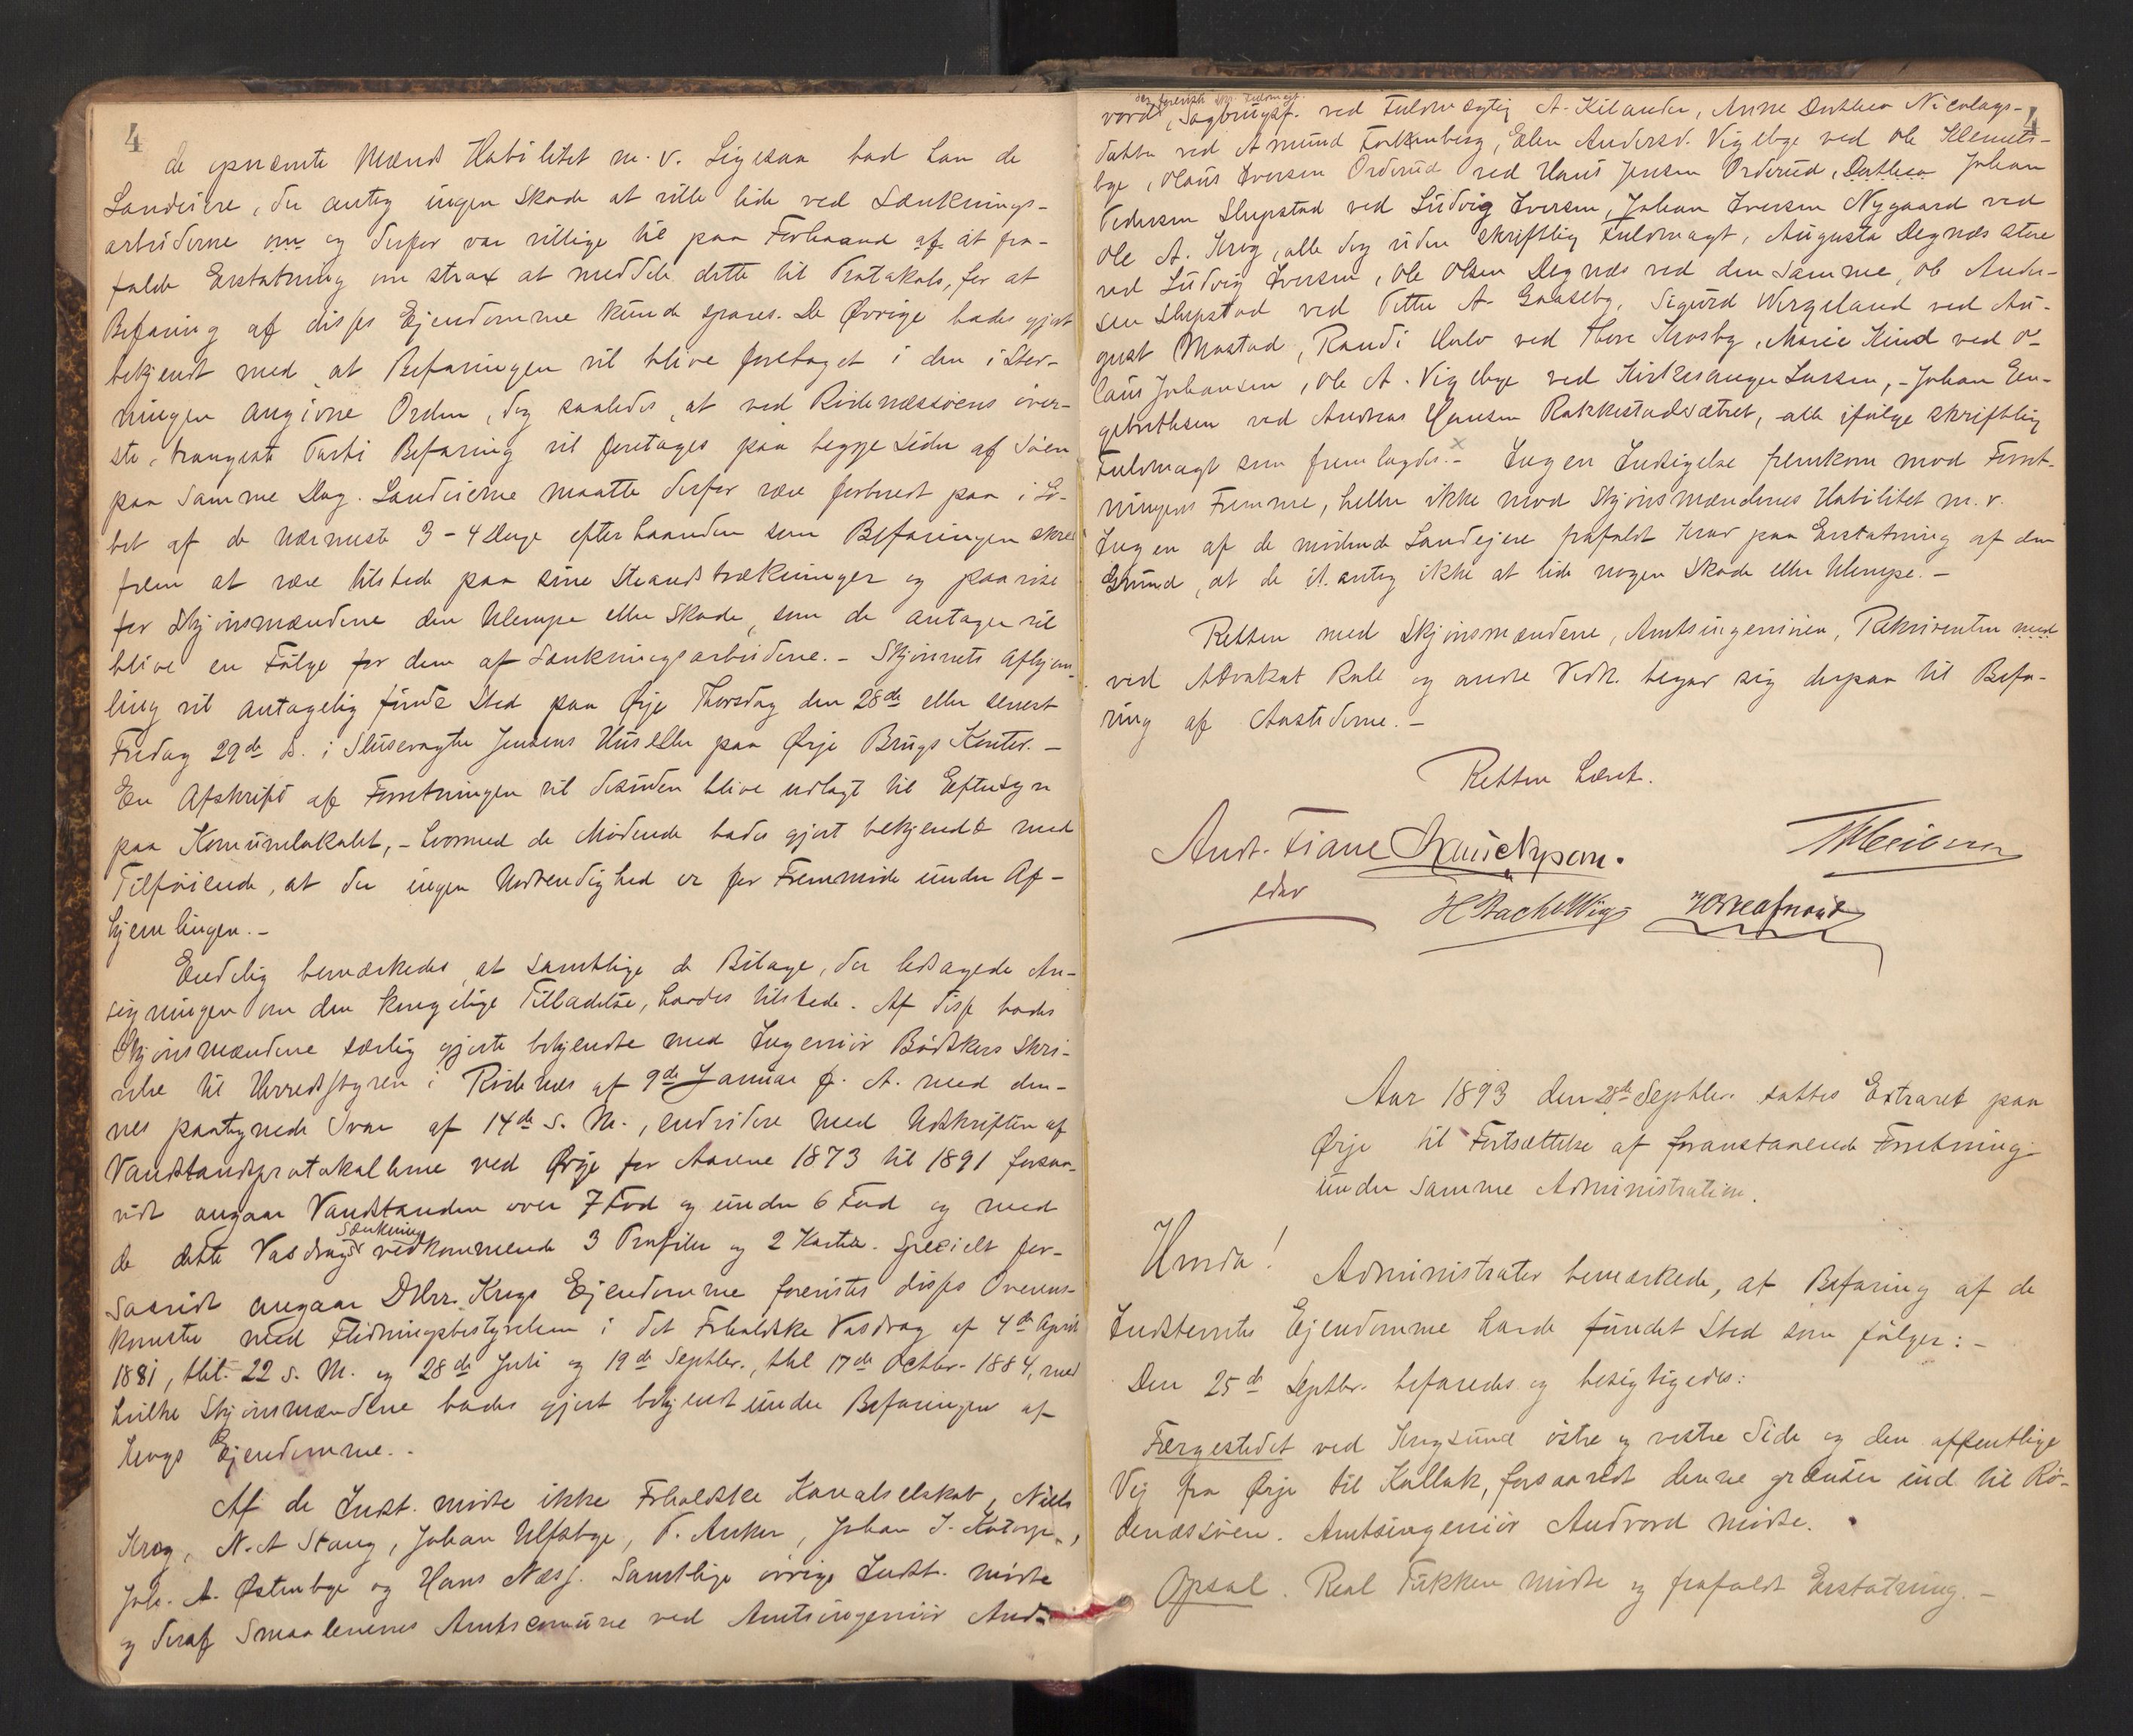 4
de opnævnte Mænds Habilitet m. v. Ligesaa bad han de
Landeiere, der antog ingen Skade at ville lide ved Sænknings-
arbeiderne om og derfor var villige til paa Forhaand af at fra-
falde Erstatning om strax at meddele dette til Protokols, for at
Befaring af disses Ejendomme kunde spares. De Øvrige bades gjort
bekjendt med, at Befaringen vil blive foretaget i den i Stev-
ningen angivne Orden, dog saaledes, at ved Rødenæssøens øver-
ste, trangeste Parti Befaring vil foretages paa begge Sider af Søen
paa samme Dag. Landeierne maatte derfor være forberedt paa i Lø-
bet af de nærmeste 3-4 Dage efterhaanden som Befaringen skred
frem at være tilstede paa sine Strandstrækninger og paavise
for Skjønsmændene den Ulempe eller Skade, som de antager vil
blive en Følge for dem af Sænkningsarbeiderne. - Skjønnets Afhjem-
ling vil antagelig finde Sted paa Ørje Thorsdag den 28de eller senest
Fredag 29de ds. i Slusevogter Jensens Hus eller paa Ørje Brugs Kontor. -
En Afskrift af Forretningen vil desuden blive udlagt til Eftersyn
paa Komunelokalet, - hvormed de Mødende bades gjort bekjendt med
Tilføiende, at der ingen Nødvendighed er for Fremmøde under Af-
hjemlingen. -
Endelig bemærkedes, at samtlige de Bilage, der ledsagede An-
søgningen om den kongelige Tilladelse, havdes tilstede. Af disse bades
Skjønsmændene særlig gjorte bekjendte med Ingeniør Bødtkers Skri-
velse til Herredsstyren i Rødenes af 9de Januar d. A. med den-
nes paategnede Svar af 14de s. M., endvidere med Udskriften af
Vandstandsprotokollerne ved Ørje for Aarene 1873 til 1891 forsaa-
vidt angaar Vandstanden over 7 Fod og under 6 Fod og med
Sænkning
de dette Vasdrags vedkommende 3 Profiler og 2 Karter. Specielt for-
saavidt angaar DHrr. Krogs Ejendomme forevistes disses Overens-
komster med Flødningsbestyrelsen i det Frhaldske Vasdrag af 4de April
1881, thl. 22 s. M. og 28de Juli og 19de Septbr., thl 17de Octbr. 1884, med
hvilke Skjønsmændene bades gjort bekjendt under Befaringen af
Krogs Ejendomme. -
Af de Indst. mødte ikke Frhaldske Kanalselskab, Niels
Krog, N. A Stang, Johan Ulfsbye, P. Anker, Johan J.
Joh. A. Østenbye og Hans Næss. Samtlige øvrige Indst. mødte
og deraf Smaalenenes Amtscomune ved Amtsingeniør And-
4
vord, Sagbrugsf. ved Fuldmægtig A. Kilander, Anne Dorthea Nicolays-
datter ved Amund Falkenberg, Elen Andersd. Vigebye ved Ole Klemets-
bye, Olaus Iversen Orderud ved Hans Jensen Orderud, Dorthea Johan
Pedersen Slupstad ved Ludvig Iversen, Johan Iversen Nygaard ved
Ole A. Krog, alle dog uden skriftlig Fuldmagt, Augusta Degnæs store
ved Ludvig Iversen, Ole Olsen Degnæs ved den samme, Ole Ander-
sen Slupstad ved Petter A. Gaaseby, Sigurd Wergeland ved Au-
gust Mostad, Randi Holv ved Thore Krosby, Marie Kind ved O-
laus Johansen, Ole A. Vigebye ved Kirkesanger Larsen, - Johan En-
gebrethsen ved Andreas Hansen Rakkestadsætret, alle ifølge skriftlig
Fuldmagt som fremlagdes. - Ingen Indsigelse fremkom mod Forret-
ningens Fremme, heller ikke mod Skjønsmændenes Habilitet m. v.
Ingen af de mødende Landejere frafaldt Krav paa Erstatning af den
Grund, at de antog ikke at lide nogen Skade eller Ulempe. -
Retten med Skjønsmændene, Amtsingeniøren, Rekvirenten med
ved Advokat Roll og andre Vedk. begav sig derpaa til Befa-
ring af Aastederne. -
Retten hævet.
Andr. Fiane
edsv
H Bache Wiig
Aar 1893 den 28de Septbr. sattes Extraret paa
Ørje til Fortsættelse af foranstaaende Forretning
under samme Administration.
Hvorda!
Administrator bemærkede, at Befaring af de
Indstevntes Ejendomme havde fundet Sted som følger: -
Den 25de Septbr. befaredes og besigtigedes:
Færgestedet ved Krogsund østre og vestre Side og den offentlige
Vej fra Ørje til Kallak, forsaavidt denne grænser ind til Rø-
denæssøen. Amtsingeniør Andvord mødte.
Opsal. Real Fukken mødte og frafaldt Erstatning. -